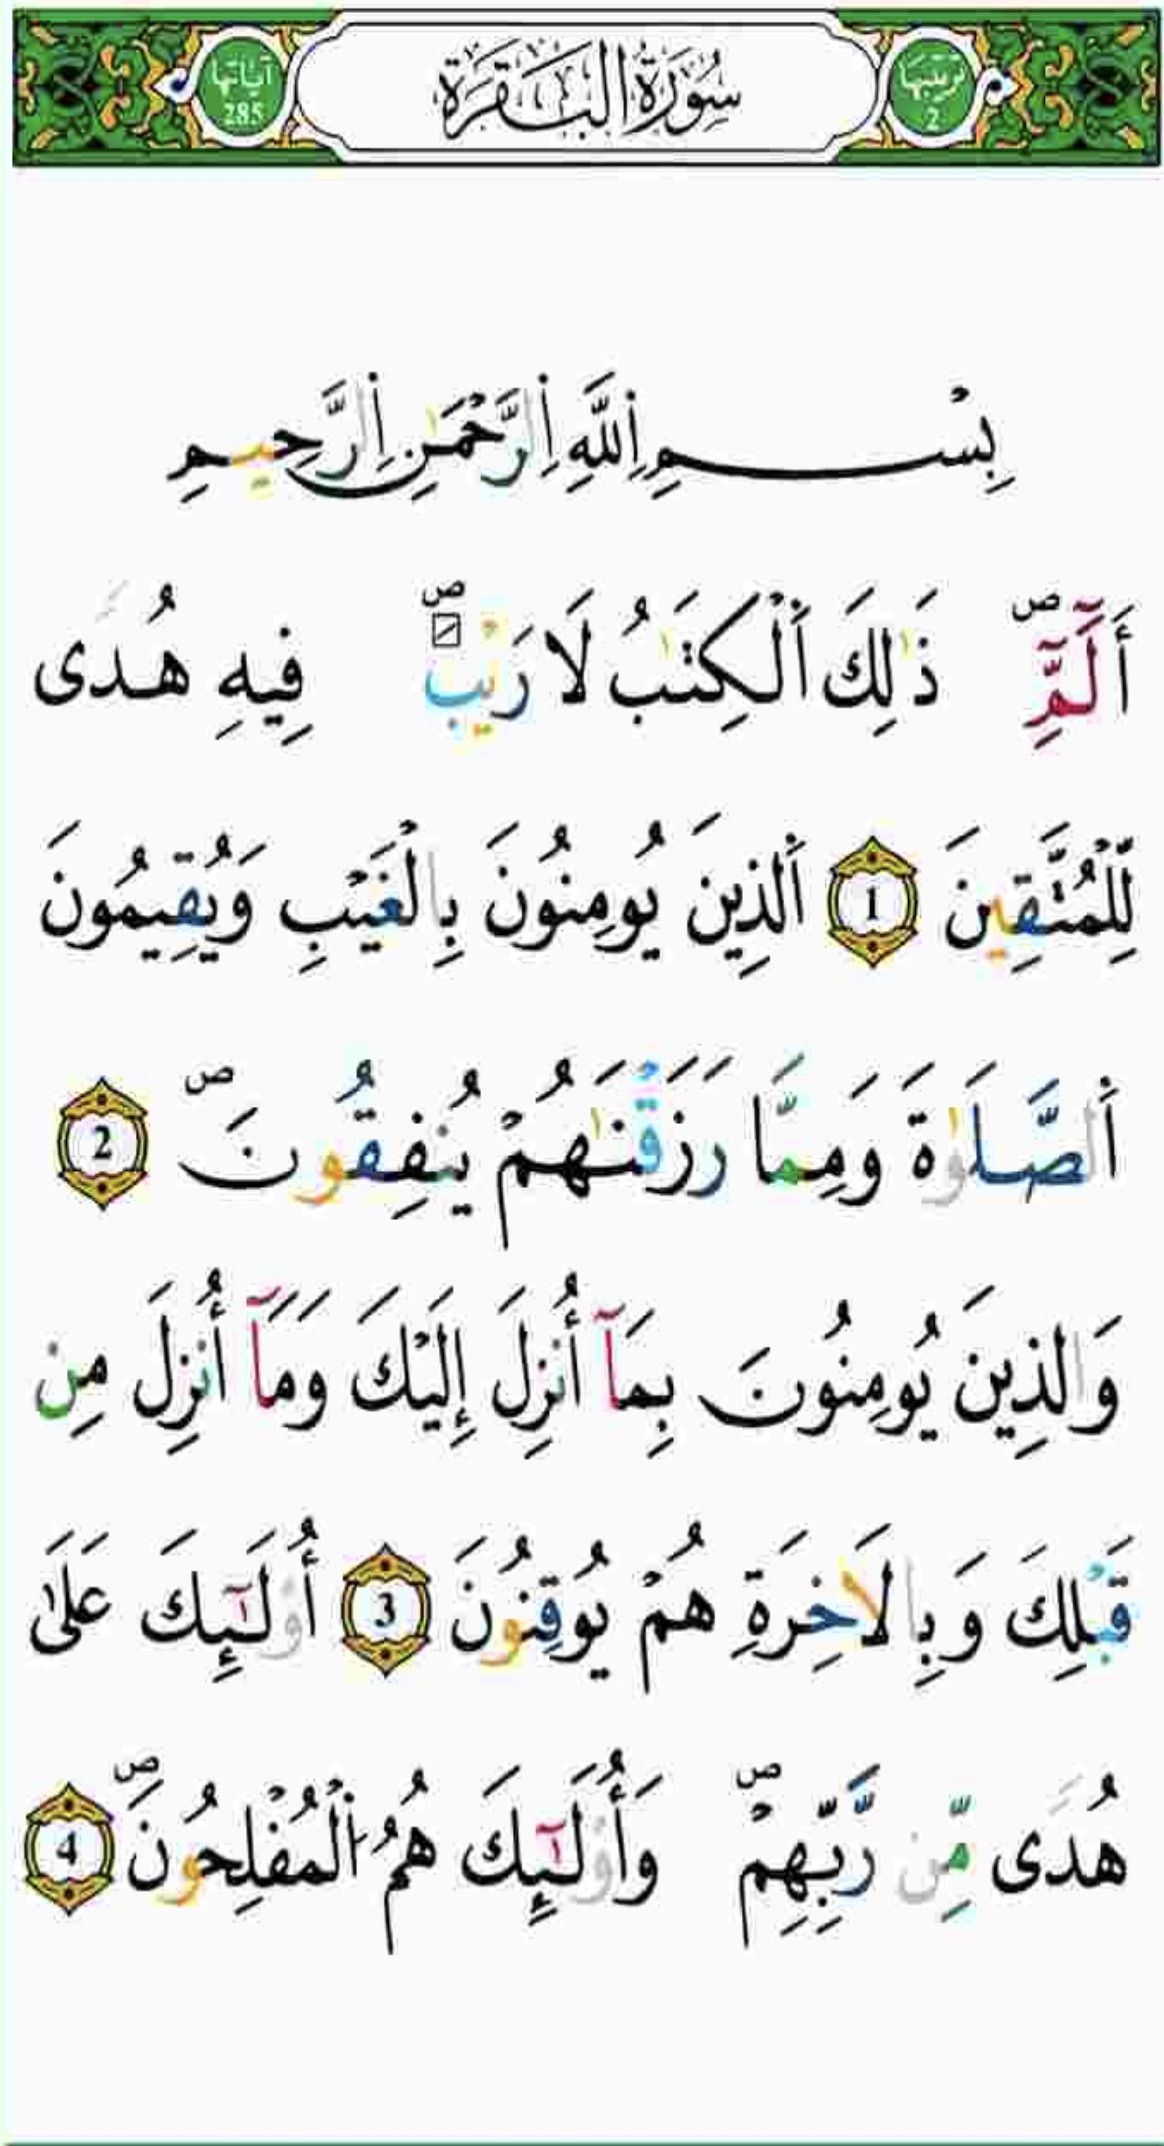 ترتيبها 2 سُورَةُ البَقَرَةِ آياتها 285
بِسْمِ اِ۬للَّهِ اِ۬لرَّحْمَٰنِ اِ۬لرَّحِيمِ
أَلَٓمِّٓۖ ذَٰلِكَ اَ۬لْكِتَٰبُ لَا رَيْبَۖ فِيهِ هُدىٗ
لِّلْمُتَّقِينَ 1 اَ۬لذِينَ يُومِنُونَ بِالْغَيْبِ وَيُقِيمُونَ
اَ۬لصَّلَوٰةَ وَمِمَّا رَزَقْنَٰهُمْ يُنفِقُونَۖ 2
وَالذِينَ يُومِنُونَ بِمَآ أُنزِلَ إِلَيْكَ وَمَآ أُنزِلَ مِن
قَبْلِكَ وَبِالَاخِرَةِ هُمْ يُوقِنُونَ 3 أُوْلَٰٓئِكَ عَلَىٰ
هُدىٗ مِّن رَّبِّهِمْۖ وَأُوْلَٰٓئِكَ هُمُ اُ۬لْمُفْلِحُونَۖ 4